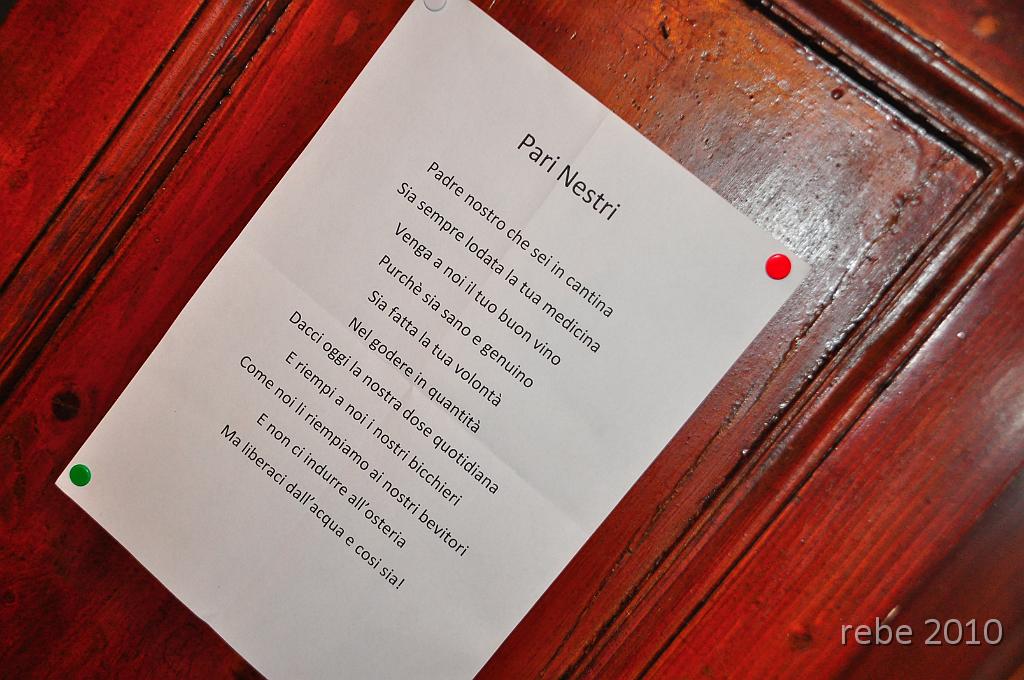 Pari Nestri
Padre nostro che sei in cantina
Sia sempre lodata la tua medicina
Venga a noi il tuo buon vino
Purchè sia sano e genuino
Sia fatta la tua volontà
Nel godere in quantità
Dacci oggi la nostra dose quotidiana
E riempi a noi i nostri bicchieri
Come noi li riempiamo ai nostri bevitori
E non ci indurre all'osteria
Ma liberaci dall'acqua e cosi sia!
rebe 2010